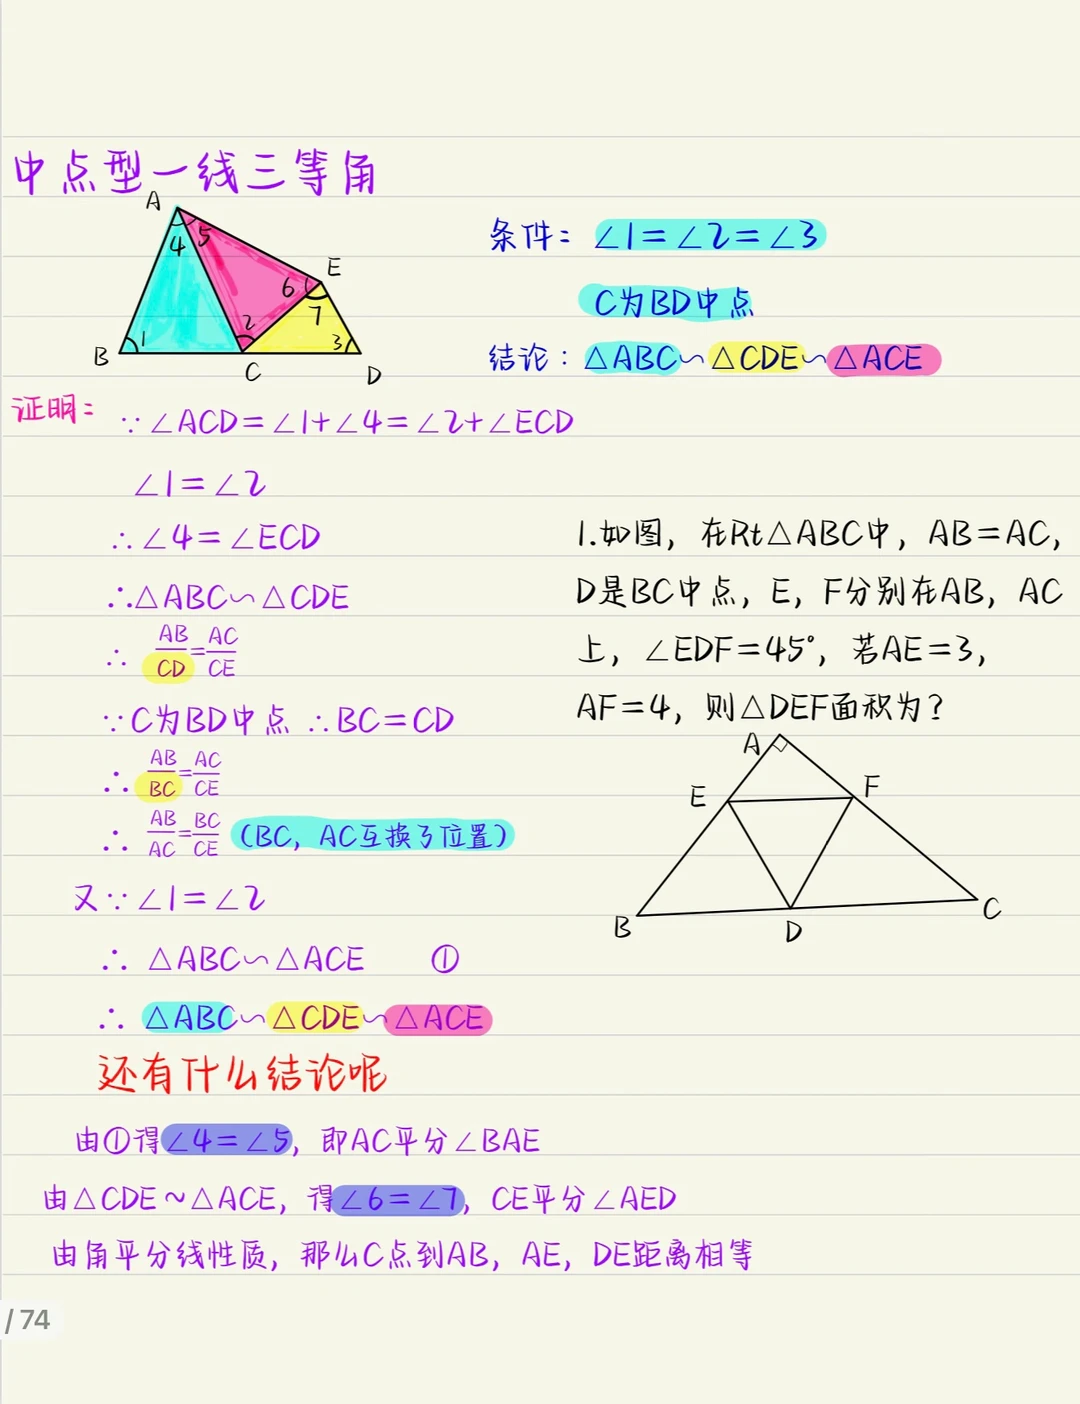 中点型一线三等角
A
4 5
E
6
7
2
1
3
B
C
D
条件：∠1=∠2=∠3
C为BD中点
结论：△ABC∽△CDE∽△ACE
证明：∵∠ACD=∠1+∠4=∠2+∠ECD
∠1=∠2
∴∠4=∠ECD
∴△ABC∽△CDE
∴ AB/CD=AC/CE
∵C为BD中点 ∴BC=CD
∴ AB/BC=AC/CE
∴ AB/AC=BC/CE （BC，AC互换了位置）
又∵∠1=∠2
∴ △ABC∽△ACE ①
∴ △ABC∽△CDE∽△ACE
还有什么结论呢
由①得∠4=∠5，即AC平分∠BAE
由△CDE~△ACE，得∠6=∠7，CE平分∠AED
由角平分线性质，那么C点到AB，AE，DE距离相等
1.如图，在Rt△ABC中，AB=AC，
D是BC中点，E，F分别在AB，AC
上，∠EDF=45°，若AE=3，
AF=4，则△DEF面积为？
A
E
F
B
D
C
/ 74